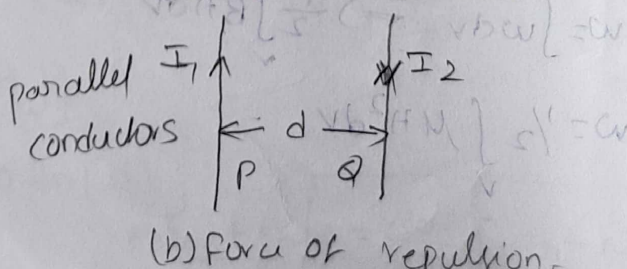 parallel I₁ I2
conductors d
P Q
(b) force of repulsion.